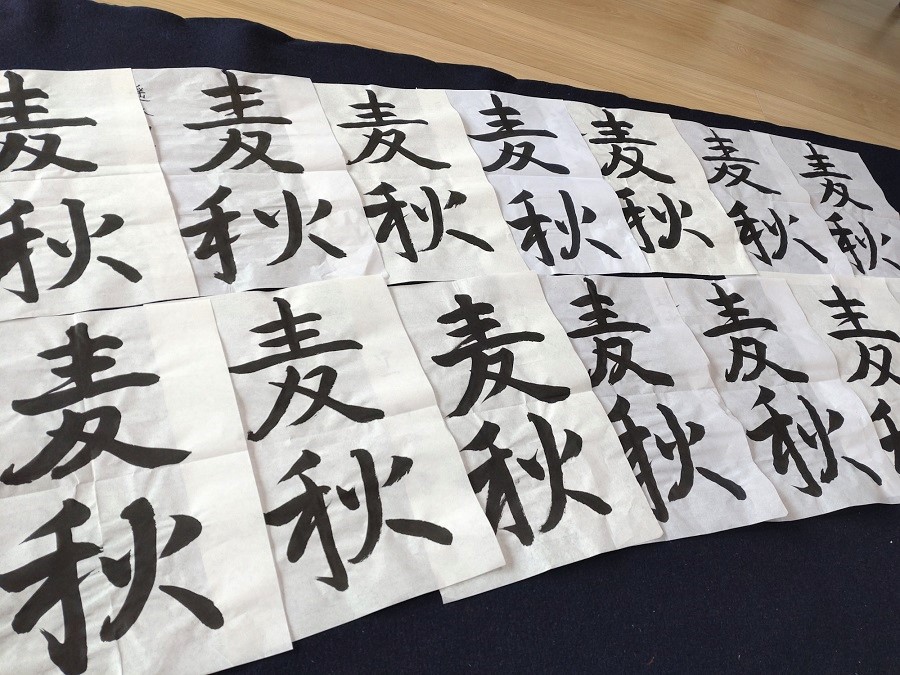 麦秋
麦秋
麦秋
麦秋
麦秋
麦秋
麦秋
麦秋
麦秋
麦秋
麦秋
麦秋
麦